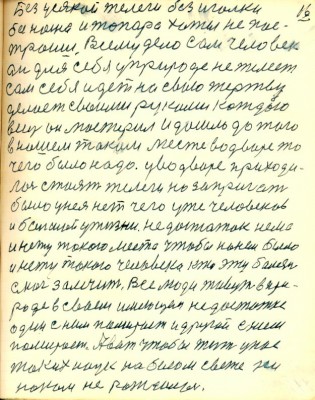 16
Без усякой телеги без иголки
бахона и топара хаты не пос-
троиш. Всему дело сам человек
он для себя у природе не тилет
сам себя идет на свою жертву
делает своими руками каждого
вещ он мастерил и дошлодо того
в нашем таком месте во дваре то
чего было надо. у во дваре приходи-
лос стоят телеги но запригат
было у нея нет чего уже человеков
и бы у жизни. недостаток нема
и нету такого места чтобы на нем было
и нету такого человека кто эту балезн
смог залечит. Все люди живут в при-
роде в своем имеющим недостатке
один с ним помирает и другой с ним
помирает. А вот чтобы тут у нас
таких наук на белом свете ни
на ком не рожалом.